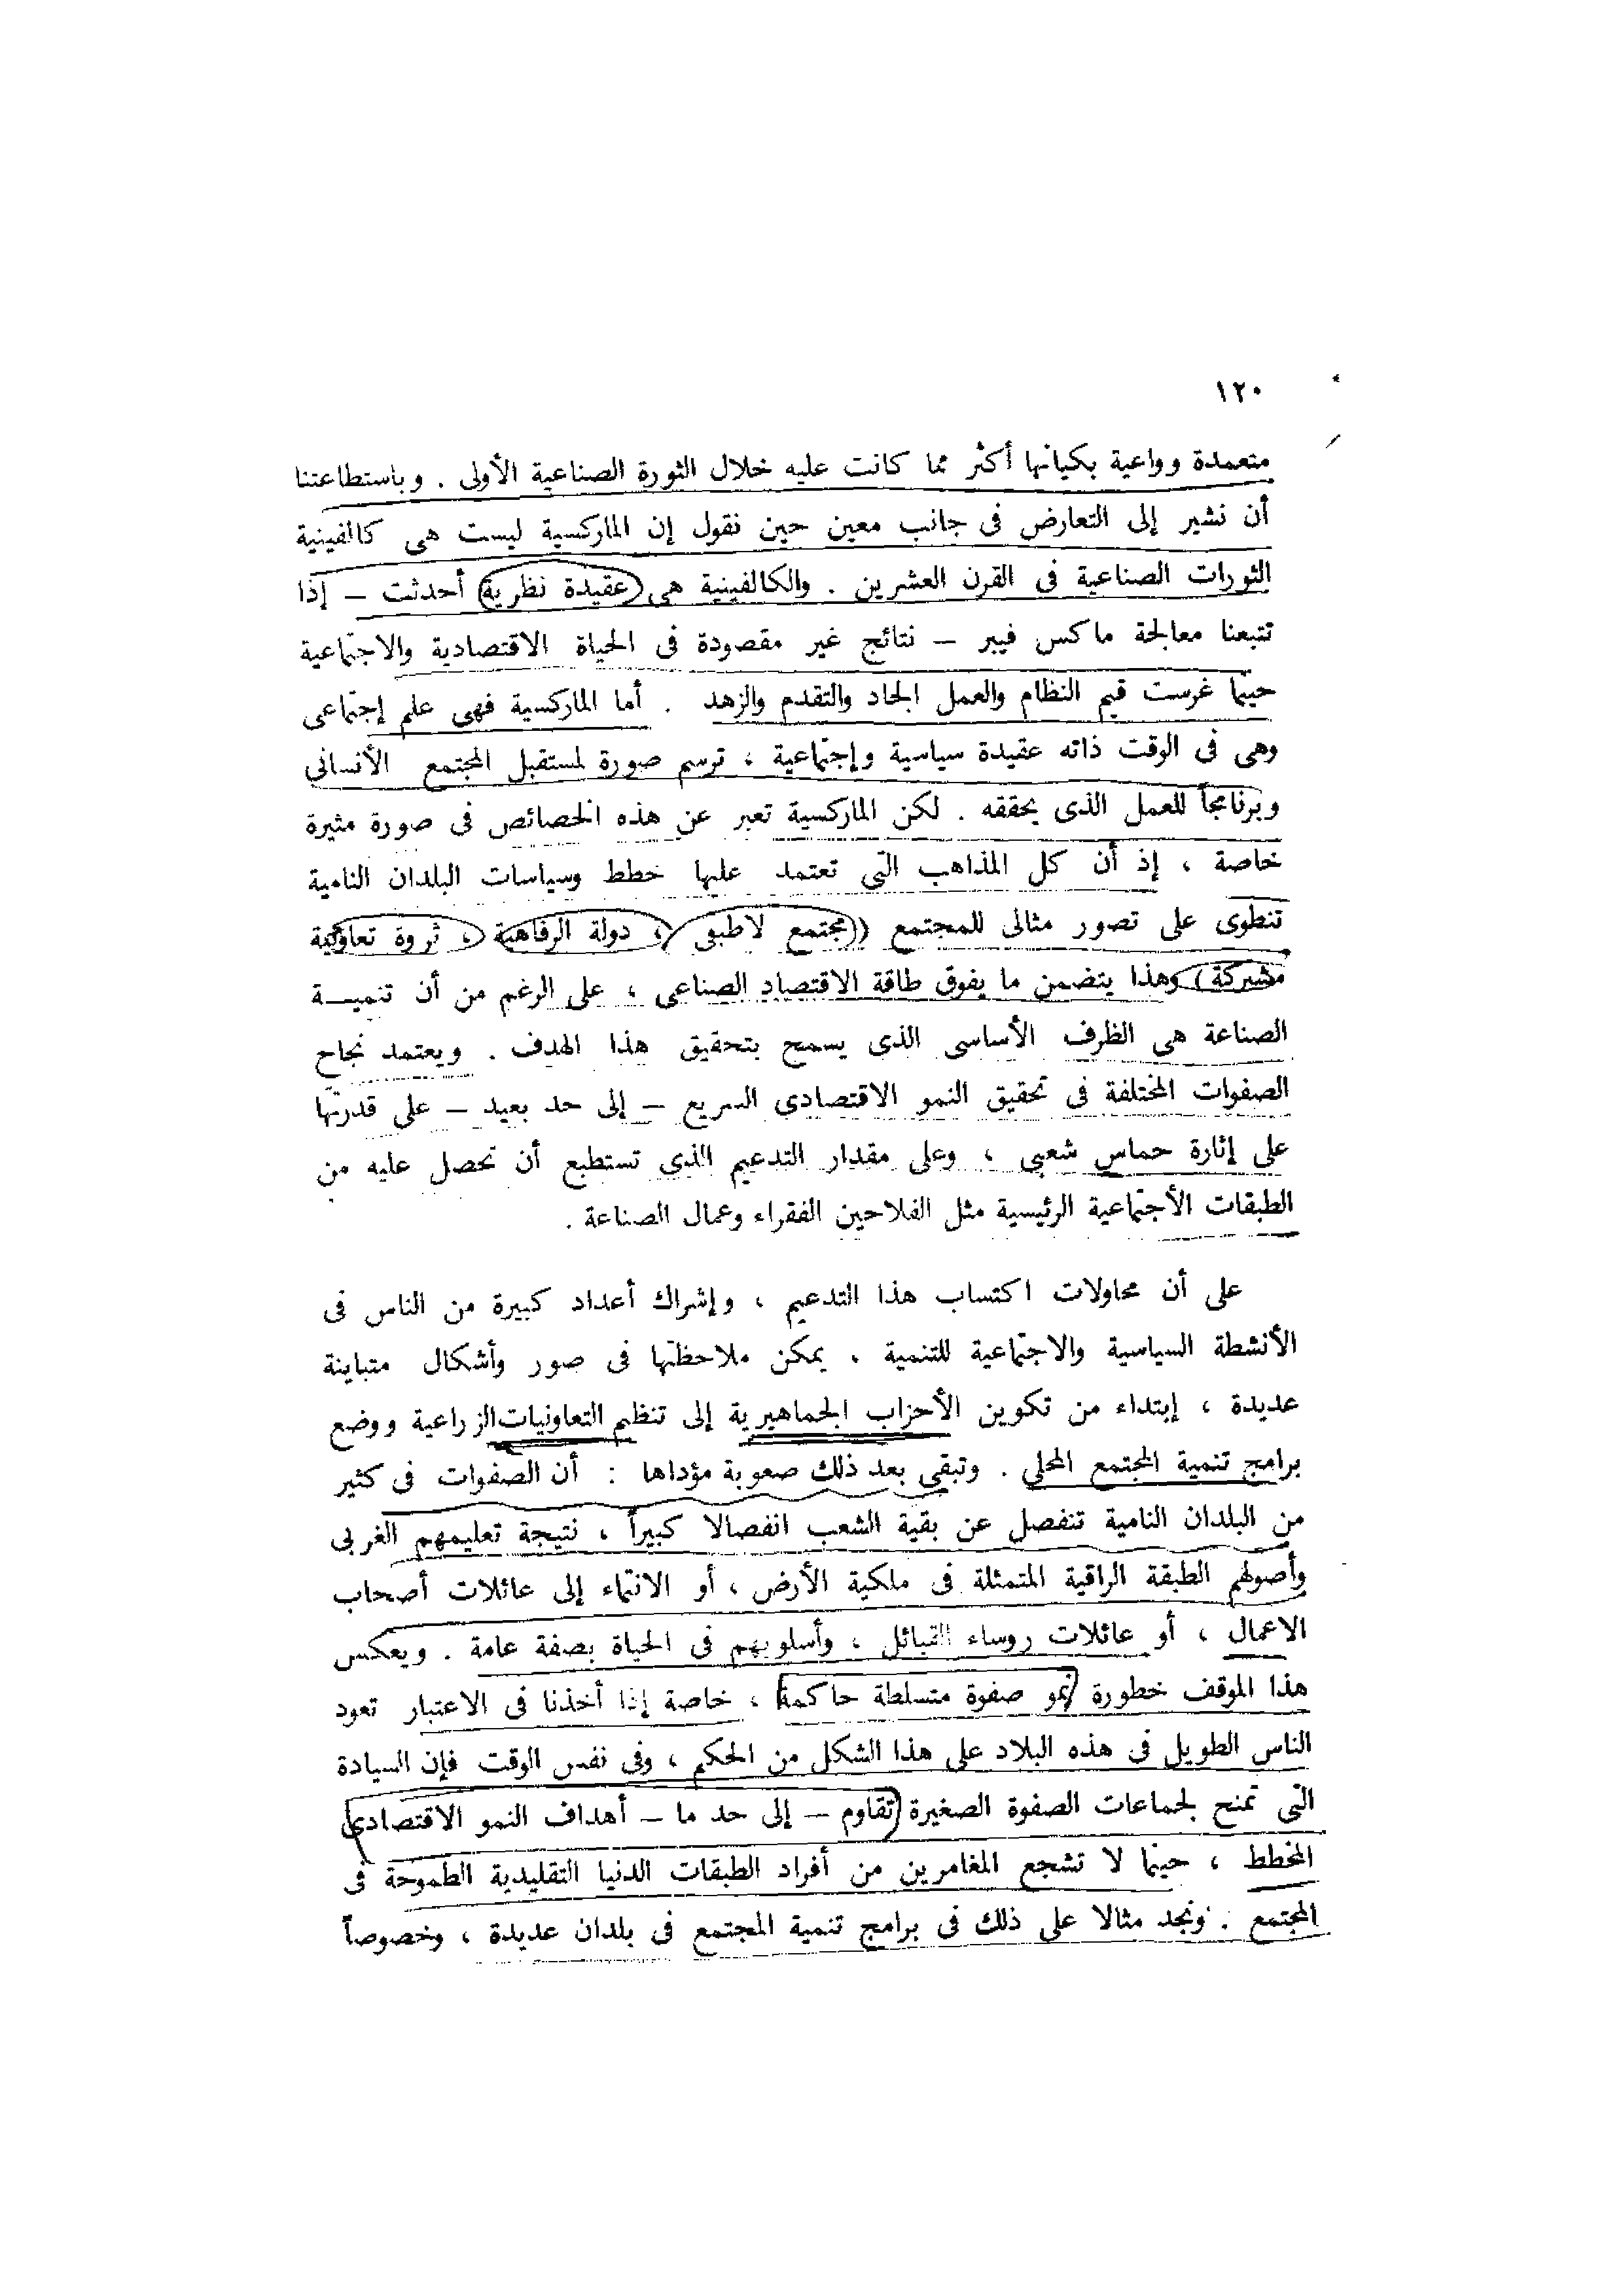 ١٢٠
متعمدة وواعية بكيانها أكثر مما كانت عليه خلال الثورة الصناعية الأولى . وباستطاعتنا
أن نشير إلى التعارض فى جانب معين حين نقول إن الماركسية ليست هى كالفينية
الثورات الصناعية فى القرن العشرين . والكالفينية هى عقيدة نظرية أحدثت – إذا
تتبعنا معالجة ماكس فيبر – نتائج غير مقصودة فى الحياة الاقتصادية والاجتماعية
حينما غرست قيم النظام والعمل الجاد والتقدم والزهد . أما الماركسية فهى علم إجتماعى
وهى فى الوقت ذاته عقيدة سياسية وإجتماعية ، ترسم صورة لمستقبل المجتمع الأنسانى
وبرنامجاً للعمل الذى يحققه . لكن الماركسية تعبر عن هذه الخصائص فى صورة مثيرة
خاصة ، إذ أن كل المذاهب التى تعتمد عليها خطط وسياسات البلدان النامية
تنطوى على تصور مثالى للمجتمع ( مجتمع لاطبقى ، دولة الرفاهية ، ثروة تعاونية
مشتركة ) وهذا يتضمن ما يفوق طاقة الاقتصاد الصناعى ، على الرغم من أن تنميــة
الصناعة هى الظرف الأساسى الذى يسمح بتحقيق هذا الهدف . ويعتمد نجاح
الصفوات المختلفة فى تحقيق النمو الاقتصادى السريع – إلى حد بعيد – على قدرتها
على إثارة حماس شعبى ، وعلى مقدار التدعيم الذى تستطيع أن تحصل عليه من
الطبقات الأجتماعية الرئيسية مثل الفلاحين الفقراء وعمال الصناعة .
على أن محاولات اكتساب هذا التدعيم ، وإشراك أعداد كبيرة من الناس فى
الأنشطة السياسية والاجتماعية للتنمية ، يمكن ملاحظتها فى صور وأشكال متباينة
عديدة ، إبتداء من تكوين الأحزاب الجماهيرية إلى تنظيم التعاونيات الزراعية ووضع
برامج تنمية المجتمع المحلى . وتبقى بعد ذلك صعوبة مؤداها : أن الصفوات فى كثير
من البلدان النامية تنفصل عن بقية الشعب انفصالا كبيراً ، نتيجة تعليمهم الغربى
وأصولهم الطبقة الراقية المتمثلة فى ملكية الأرض ، أو الانتماء إلى عائلات أصحاب
الاعمال ، أو عائلات روساء القبائل ، وأسلوبهم فى الحياة بصفة عامة . ويعكس
هذا الموقف خطورة نمو صفوة متسلطة حاكمة ، خاصة إذا أخذنا فى الاعتبار تعود
الناس الطويل فى هذه البلاد على هذا الشكل من الحكم ، وفى نفس الوقت فإن السيادة
التى تمنح لجماعات الصفوة الصغيرة تقاوم – إلى حد ما – أهداف النمو الاقتصادى
المخطط ، حينما لا تشجع المغامرين من أفراد الطبقات الدنيا التقليدية الطموحة فى
المجتمع . ونجد مثالا على ذلك فى برامج تنمية المجتمع فى بلدان عديدة ، وخصوصاً